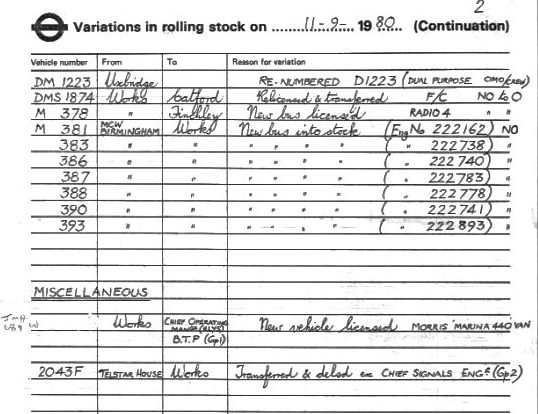 2
Variations in rolling stock on 11-9- 1980 (Continuation)
Vehicle number From To Reason for variation
DM 1223 Uxbridge RE-NUMBERED D1223 (DUAL PURPOSE OMO/CREW)
DMS 1874 Works Catford Relicensed & transferred F/C NO to O
M 378 " Finchley New bus licens'd RADIO 4 " "
M 381 MCW BIRMINGHAM Works New bus into stock (Eng No 222162) NO
383 " " " " " " ( " 222738) "
386 " " " " " " ( " 222740) "
387 " " " " " " ( " 222783) "
388 " " " " " " ( " 222778) "
390 " " " " " " ( " 222741) "
393 " " " " " " ( " 222893) "
MISCELLANEOUS
W Works CHIEF OPERATING MANGR (RLYS) B.T.P (Gp1) New vehicle licensed MORRIS 'MARINA 440' VAN
2043F TELSTAR HOUSE Works Transferred & delsd ex CHIEF SIGNALS ENGR (Gp2)